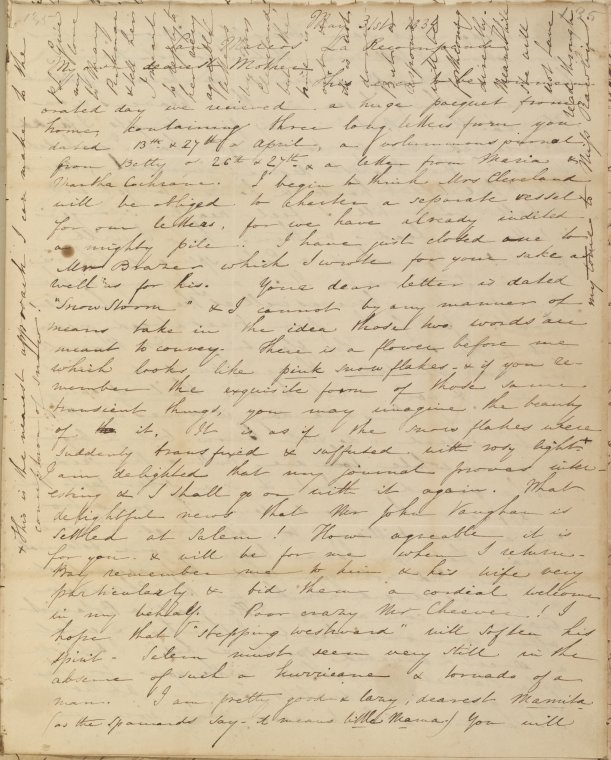 May 31st 1834
San Marcos La Recompensa
My dearest Mother
orated day we received a huge pacquet from
home, containing three long letters from you
dated 13th & 27th of April, a voluminous journal
from Betty of 26th & 27th & a letter from Maria &
Martha Cochrane. I begin to think Mrs Cleveland
will be obliged to charter a separate vessel
for our letters, for we have already indited
a mighty pile. I have just closed one to
Mr Brazer which I wrote for your sake as
well as for his. Your dear letter is dated
"Snow Storm" & I cannot by any manner of
means take in the idea those two words are
meant to convey. There is a flower before me
which looks like pink snow flakes - & if you re-
member the exquisite form of those same
transient things, you may imagine the beauty
of it. It is as if the snow flakes were
suddenly transfixed & suffused with rosy light +
I am delighted that my journal proves inter-
esting & I shall go on with it again. What
delightful news that Mr John Vaughan is
settled at Salem! How agreeable it is
for you & will be for me when I return -
Pray remember me to him & his wife very
particularly & bid them a cordial welcome
in my behalf. Poor crazy Mr Cheever! I
hope that "stepping westward" will soften his
spirit - Salem must seem very still in the
absence of such a hurricane & tornado of a
man. I am pretty good & lazy, dearest Mamita
(as the Spaniards say - it means little Mama) You will
+ This is the nearest approach I can make to the
conception of snow!
my love to Miss Rawlins